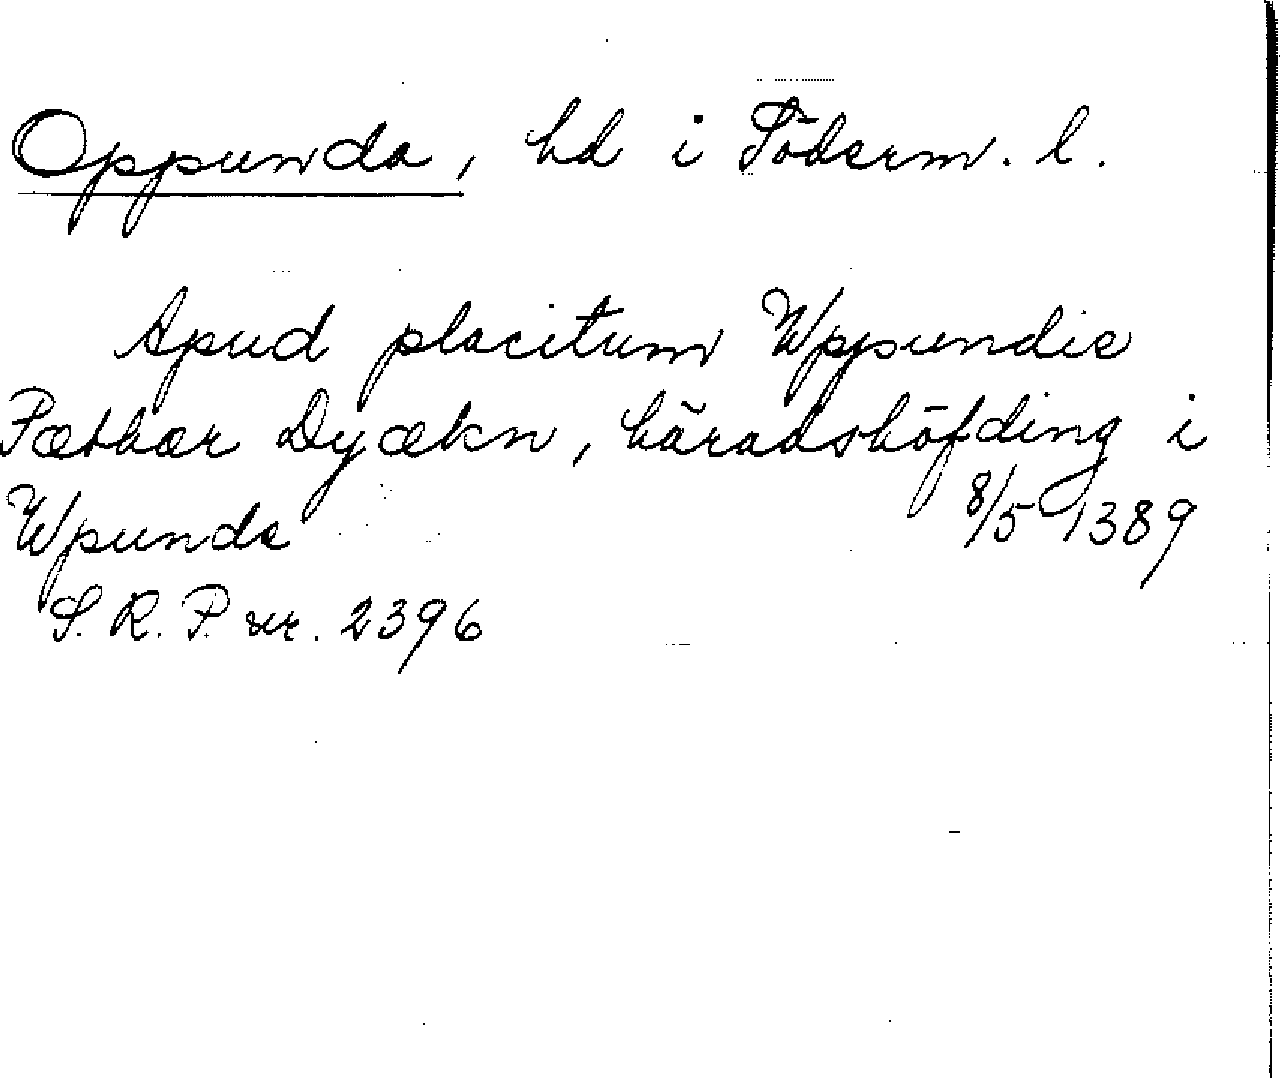 Oppunda, hd i Söderm. l.
Apud placitum Wppundie
Pæthar Dyækn, häradshöfding i
Wpunde 8/5 1389
S. R. P. nr. 2396